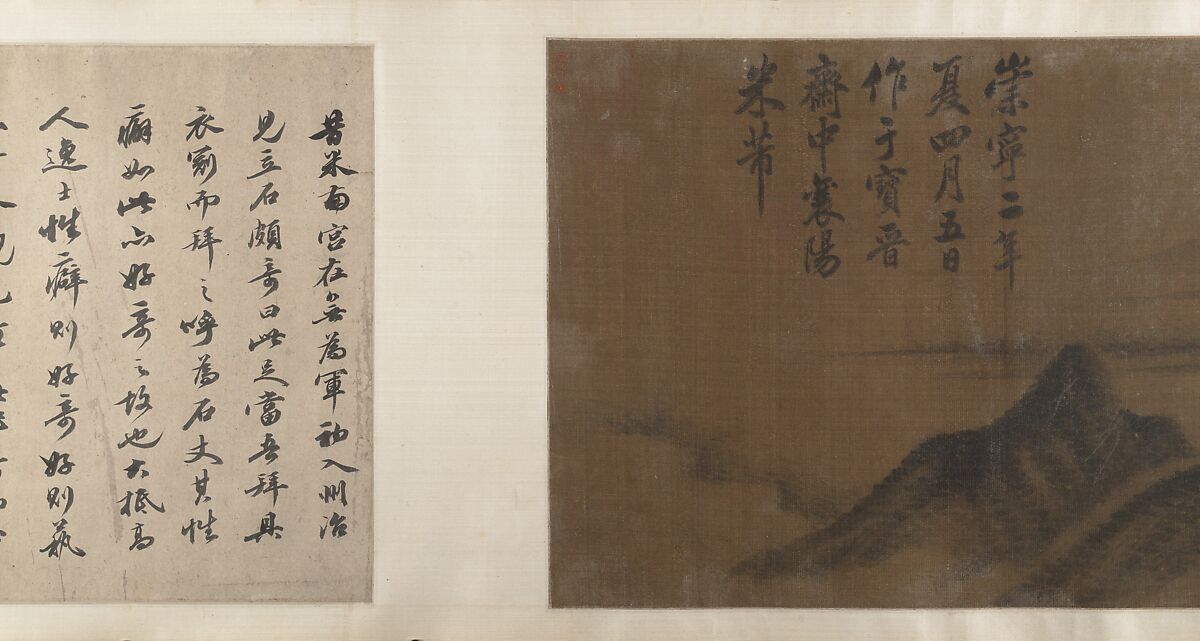 崇寧二年
夏四月五日
作于寶晉
齋中襄陽
米芾
昔米南宮在無為軍初入州治
見立石頗奇曰此足當吾拜具
衣笏而拜之呼為石丈其性
癖如此亦好奇之故也大抵高
人逸士性癖則好奇好則蓺